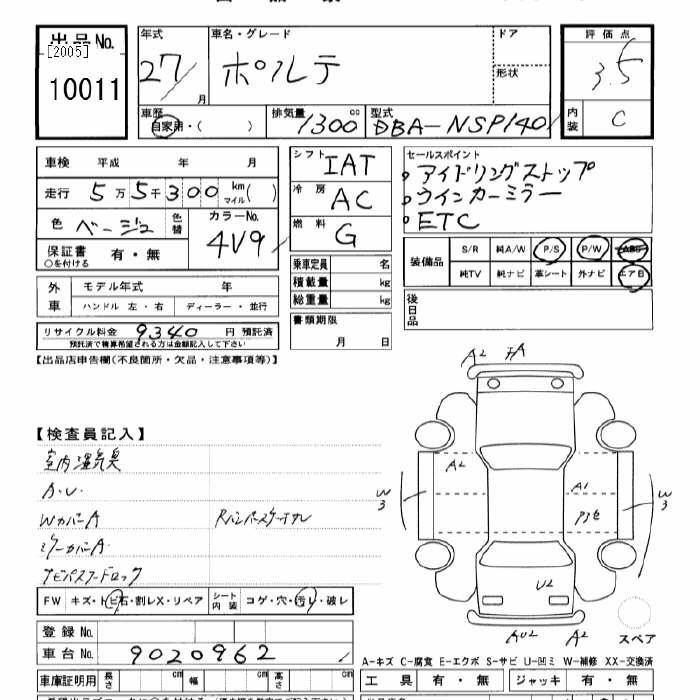 出品No.
[2005]
10011
年式
27/月
車名・グレード
ポルテ
ドア
形状
評価点
3.5
車歴
自家用・( )
排気量
1300 cc
型式
DBA-NSP140
内装
C
車検 平成 年 月
走行 5万5千300 km マイル( )
色 ベージュ 色替
カラーNo.
4V9
保証書 有・無
○を付ける
シフト IAT
冷房 AC
燃料 G
セールスポイント
アイドリングストップ
ウインカーミラー
ETC
装備品 S/R 純A/W P/S P/W ABS
純TV 純ナビ 革シート 外ナビ エアB
外車 モデル年式 年
ハンドル 左・右 ディーラー・並行
乗車定員 名
積載量 kg
総重量 kg
後日品
リサイクル料金 9340 円 預託済
預託済で精算希望される方は金額記入して下さい
書類期限
月 日
【出品店申告欄(不良箇所・欠品・注意事項等)】
A2
【検査員記入】
室内湿気臭
A.U.
WカバーA
ミラーカバーA
A2
A1
W3
W3
U2
FW キズ・トビ石・割レX・リペア シート内装 コゲ・穴・汚レ・破レ
スペア
AU2
A2
登録No.
車台No. 9020962
A-キズ C-腐食 E-エクボ S-サビ U-凹ミ W-補修 XX-交換済
車庫証明用 長さ cm 幅 cm 高さ cm
工具 有・無 ジャッキ 有・無